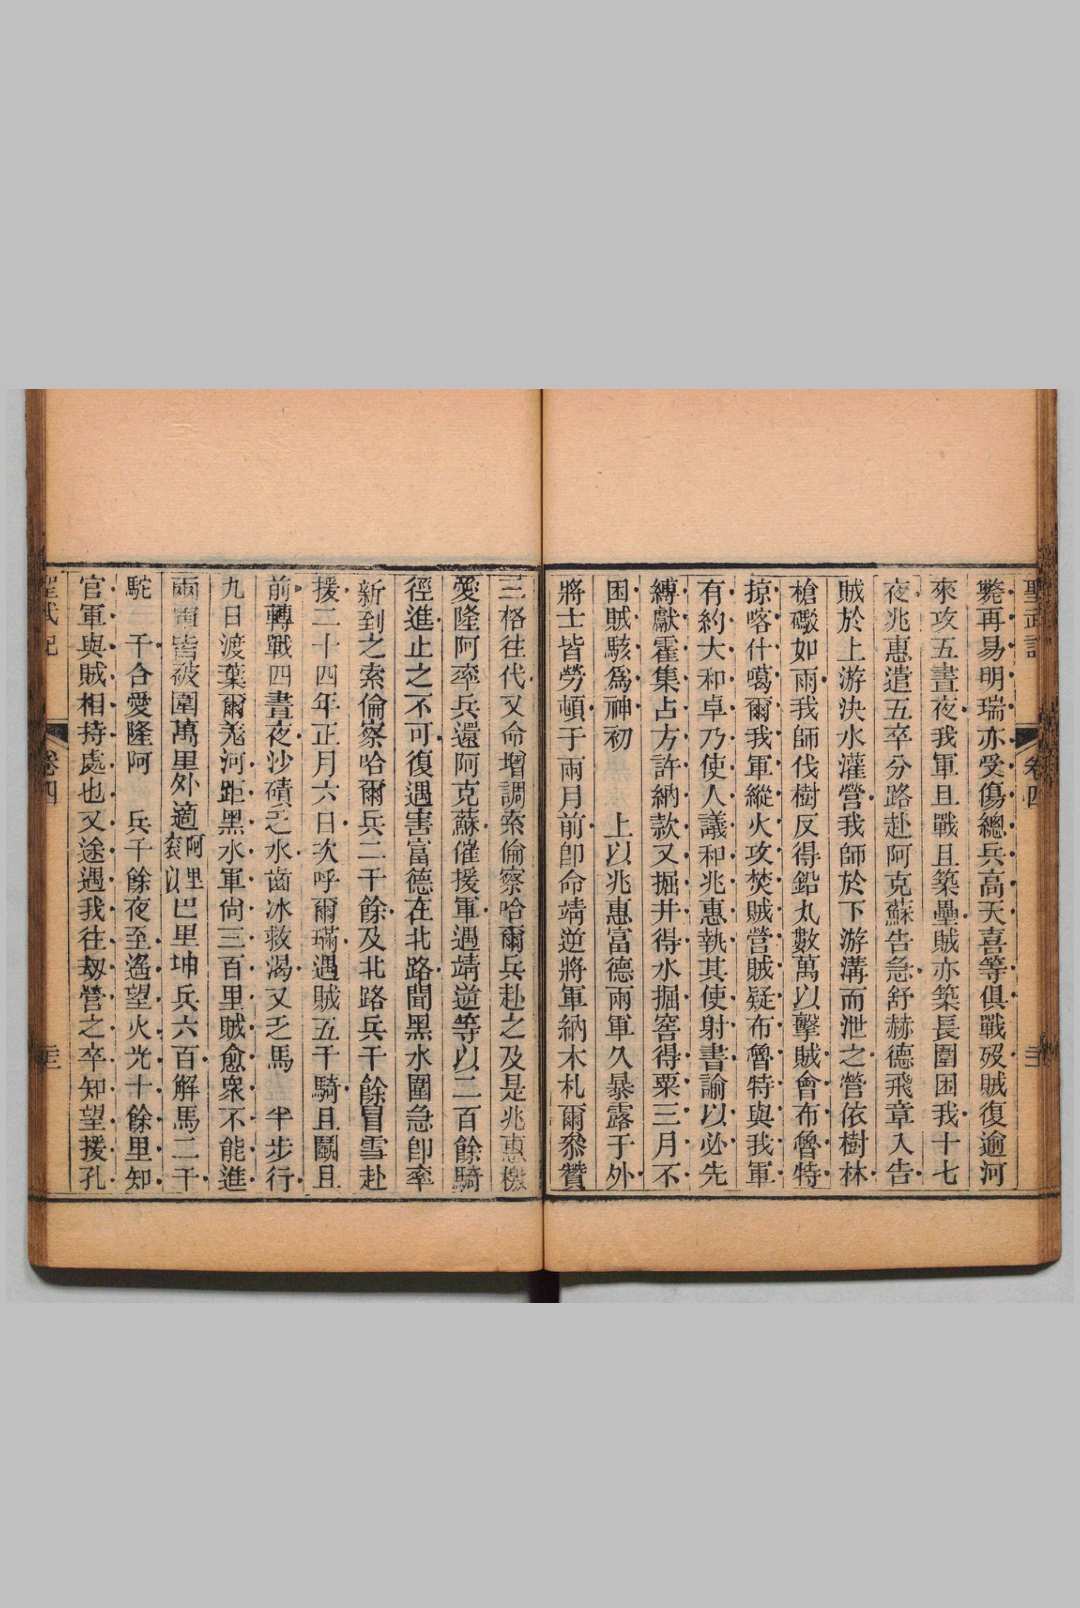 聖武記 卷四
斃再易明瑞亦受傷總兵高天喜等俱戰歿賊復逾河
來攻五晝夜我軍且戰且築壘賊亦築長圍困我十七
夜兆惠遣五卒分路赴阿克蘇告急舒赫德飛章入告
賊於上游決水灌營我師於下游溝而泄之營依樹林
槍礮如雨我師伐樹反得鉛丸數萬以擊賊會布魯特
掠喀什噶爾我軍縱火攻焚賊營賊疑布魯特與我軍
有約大和卓乃使人議和兆惠執其使射書諭以必先
縛獻霍集占方許納款又掘井得水掘窖得粟三月不
困賊駭爲神初 上以兆惠富德兩軍久暴露于外
將士皆勞頓于兩月前卽命靖逆將軍納木札爾叅贊
三格往代又命增調索倫察哈爾兵赴之及是兆惠檄
愛隆阿率兵還阿克蘇催援軍遇靖逆等以二百餘騎
徑進止之不可復遇害富德在北路聞黑水圍急卽率
新到之索倫察哈爾兵二千餘及北路兵千餘冒雪赴
援二十四年正月六日次呼爾璊遇賊五千騎且鬬且
前轉戰四晝夜沙磧乏水齒冰救渴又乏馬 半步行
九日渡葉爾羌河距黑水軍尙三百里賊愈衆不能進
兩軍皆被圍萬里外適阿里袞以巴里坤兵六百解馬二千
駝 千合愛隆阿 兵千餘夜至遙望火光十餘里知
官軍與賊相持處也又途遇我往刼營之卒知望援孔
聖武記 卷四